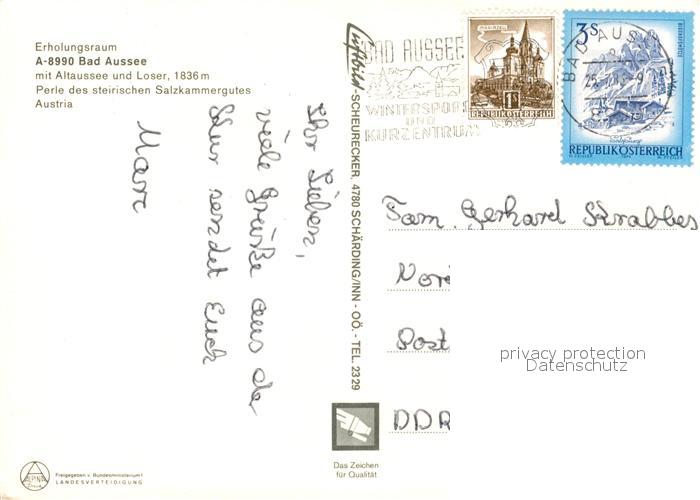 Erholungsraum
A-8990 Bad Aussee
mit Altaussee und Loser, 1836 m
Perle des steirischen Salzkammergutes
Austria
Ihr Lieben,
viele Grüße aus der
Kur sendet Euch
Marc
Luftbild-SCHEURECKER, 4780 SCHÄRDING/INN - OÖ. - TEL. 2329
BAD AUSSEE
WINTERSPORT
UND
KURZENTRUM
MARIAZELL
1
REPUBLIK ÖSTERREICH
3S
REPUBLIK ÖSTERREICH
BAD AUS
Fam. Gerhard Krabbes
Nor
Post
DDR
privacy protection
Datenschutz
Das Zeichen
für Qualität
ALPINA
Freigegeben v. Bundesministerium f.
LANDESVERTEIDIGUNG